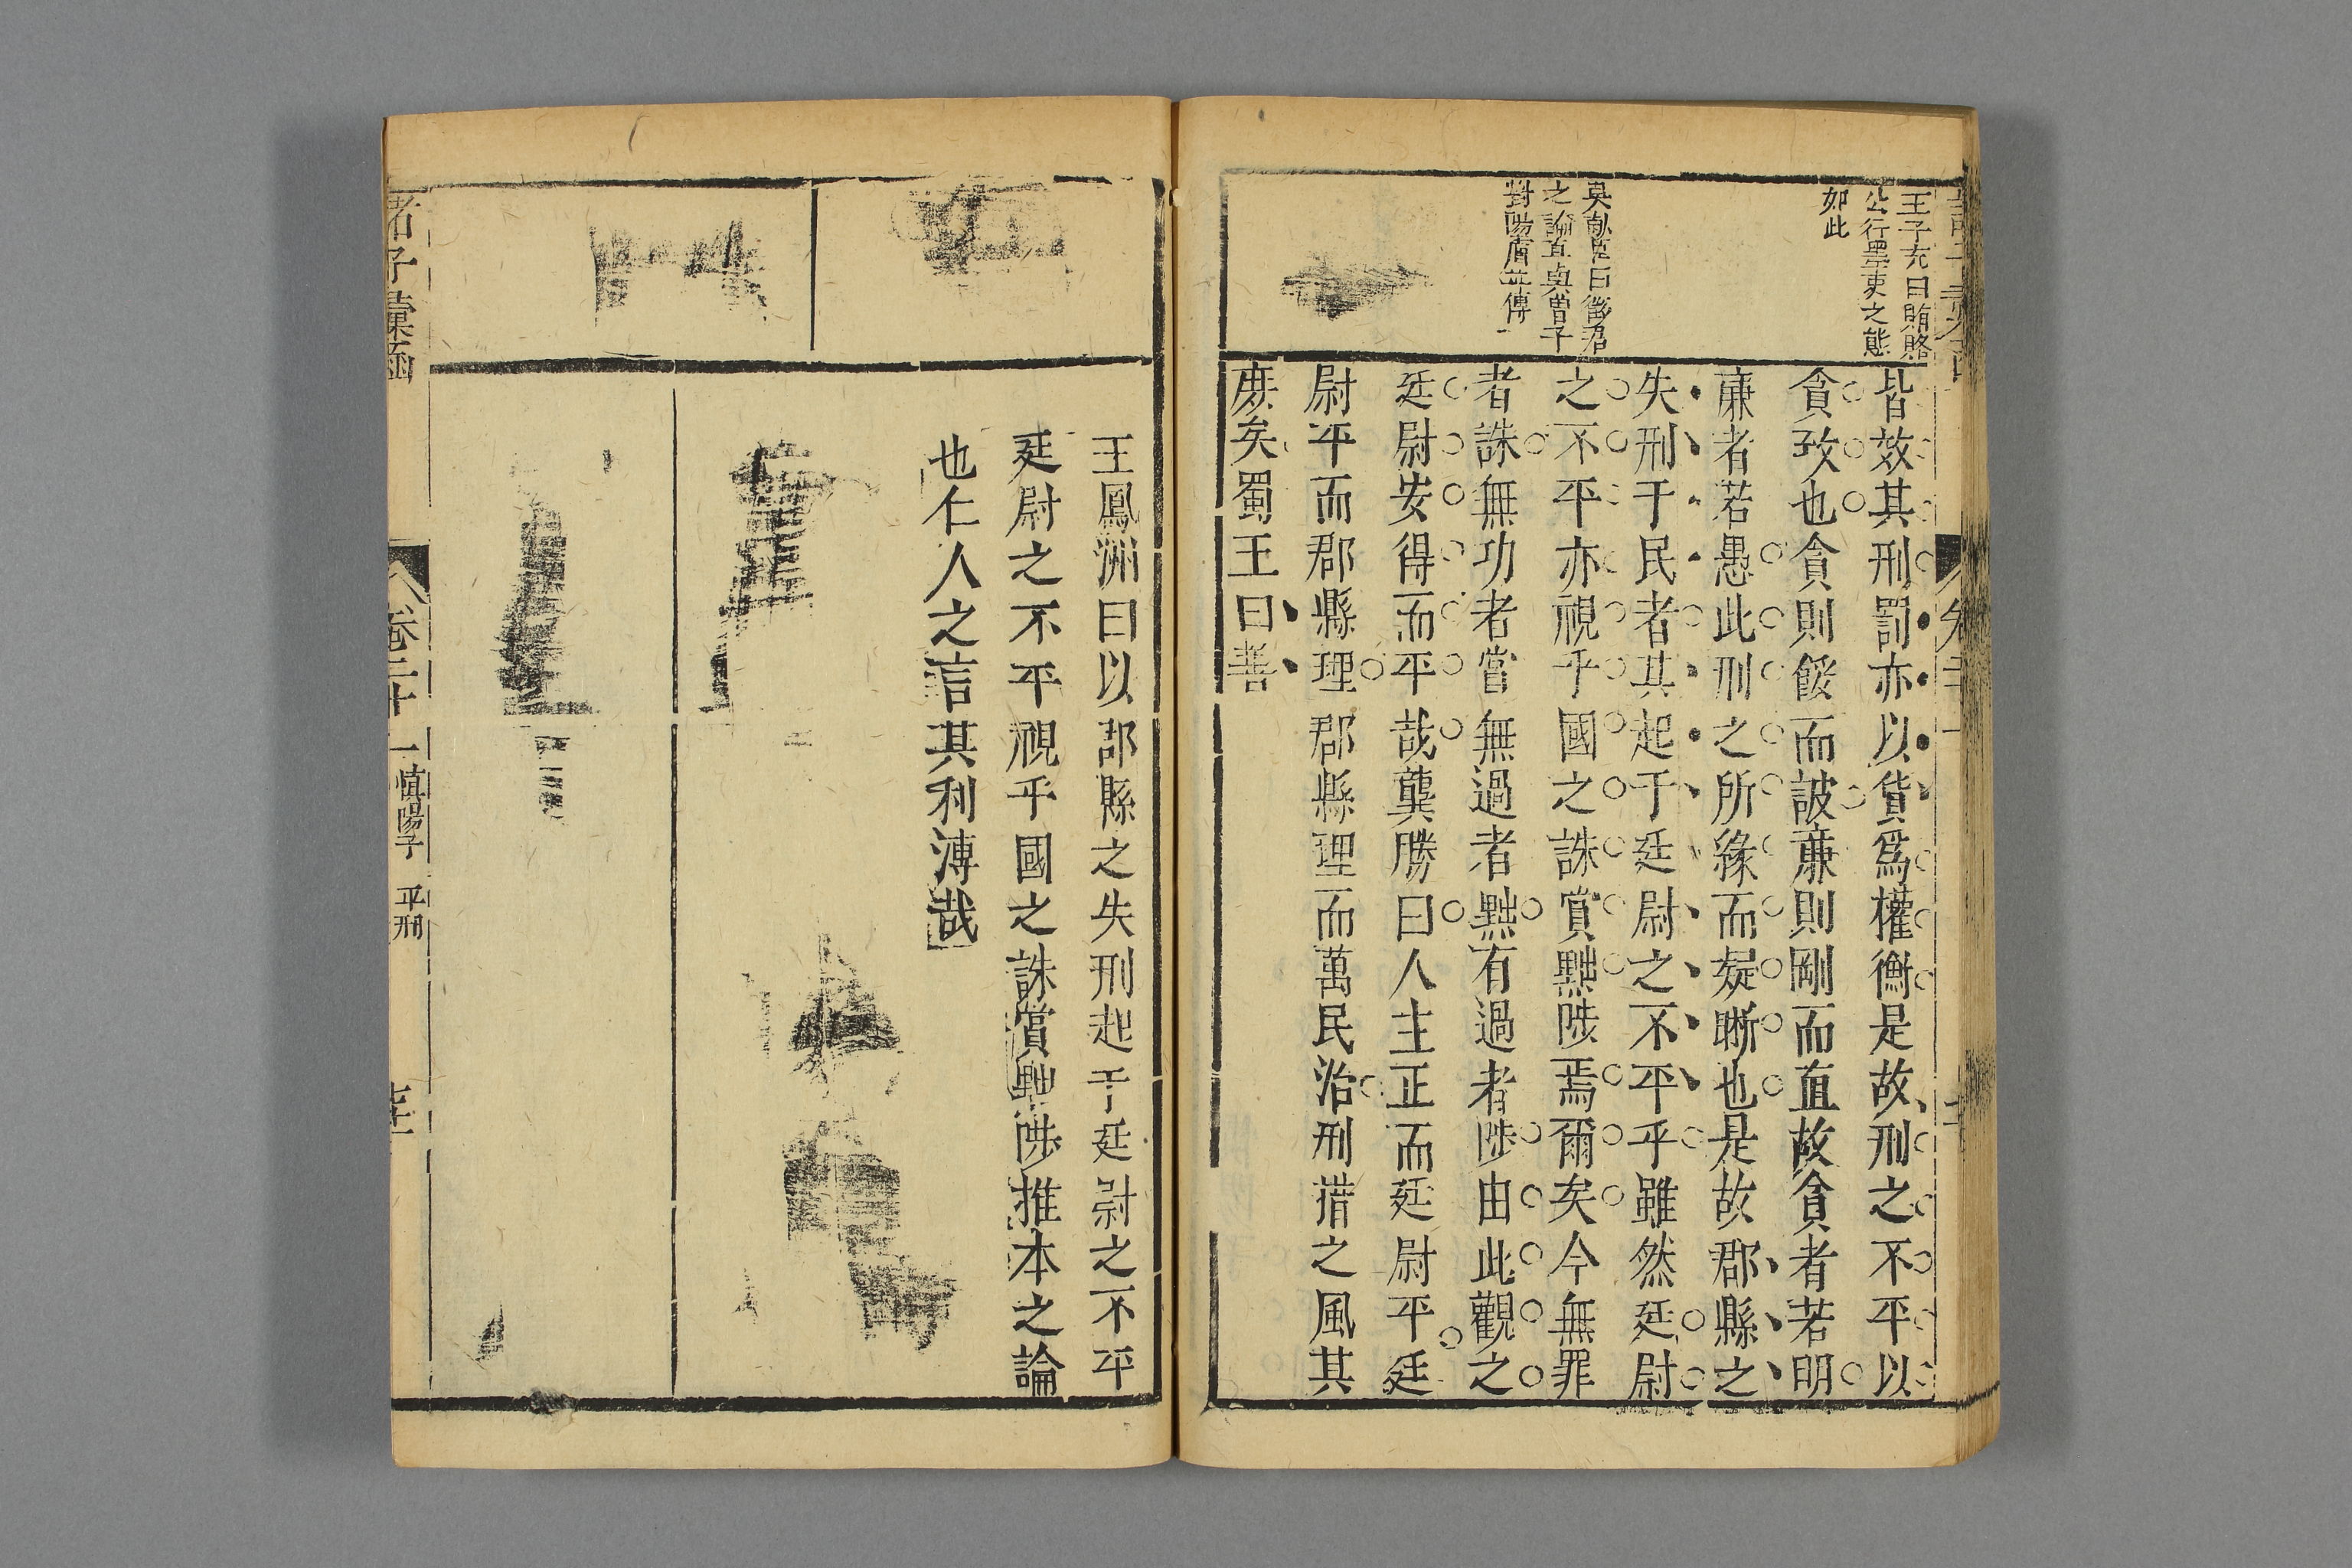 王子充曰賄賂
公行墨吏之態
如此
吳獻臣曰徵君
之論直與曾子
對陽膚並傳
皆效其刑罰亦以貨爲權衡是故刑之不平以
貪致也貪則餒而詖亷則剛而直故貪者若明
亷者若愚此刑之所緣而疑晰也是故郡縣之
失刑于民者其起于廷尉之不平乎雖然廷尉
之不平亦視乎國之誅賞黜陟焉爾矣今無罪
者誅無功者嘗無過者黜有過者陟由此觀之
廷尉安得而平哉龔勝曰人主正而廷尉平廷
尉平而郡縣理郡縣理而萬民治刑措之風其
庶矣蜀王曰善
王鳳洲曰以郡縣之失刑起于廷尉之不平
廷尉之不平視乎國之誅賞黜陟推本之論
也仁人之言其利溥哉
諸子彙函
卷二十一 慎陽子 平刑